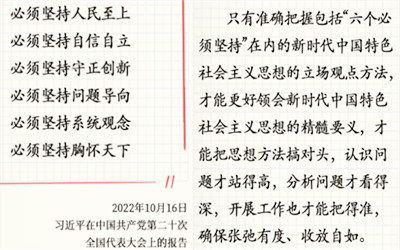 必须坚持人民至上
必须坚持自信自立
必须坚持守正创新
必须坚持问题导向
必须坚持系统观念
必须坚持胸怀天下
2022年10月16日
习近平在中国共产党第二十次
全国代表大会上的报告
只有准确把握包括“六个必
须坚持”在内的新时代中国特色
社会主义思想的立场观点方法，
才能更好领会新时代中国特色
社会主义思想的精髓要义，才
能把思想方法搞对头，认识问
题才站得高，分析问题才看得
深，开展工作也才能把得准，
确保张弛有度、收放自如。